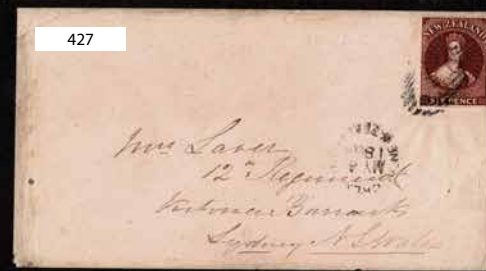 427
NEW ZEALAND
SIX PENCE
Mrs Laver
12th Regiment
Victoria Barracks
Sydney N. S. Wales